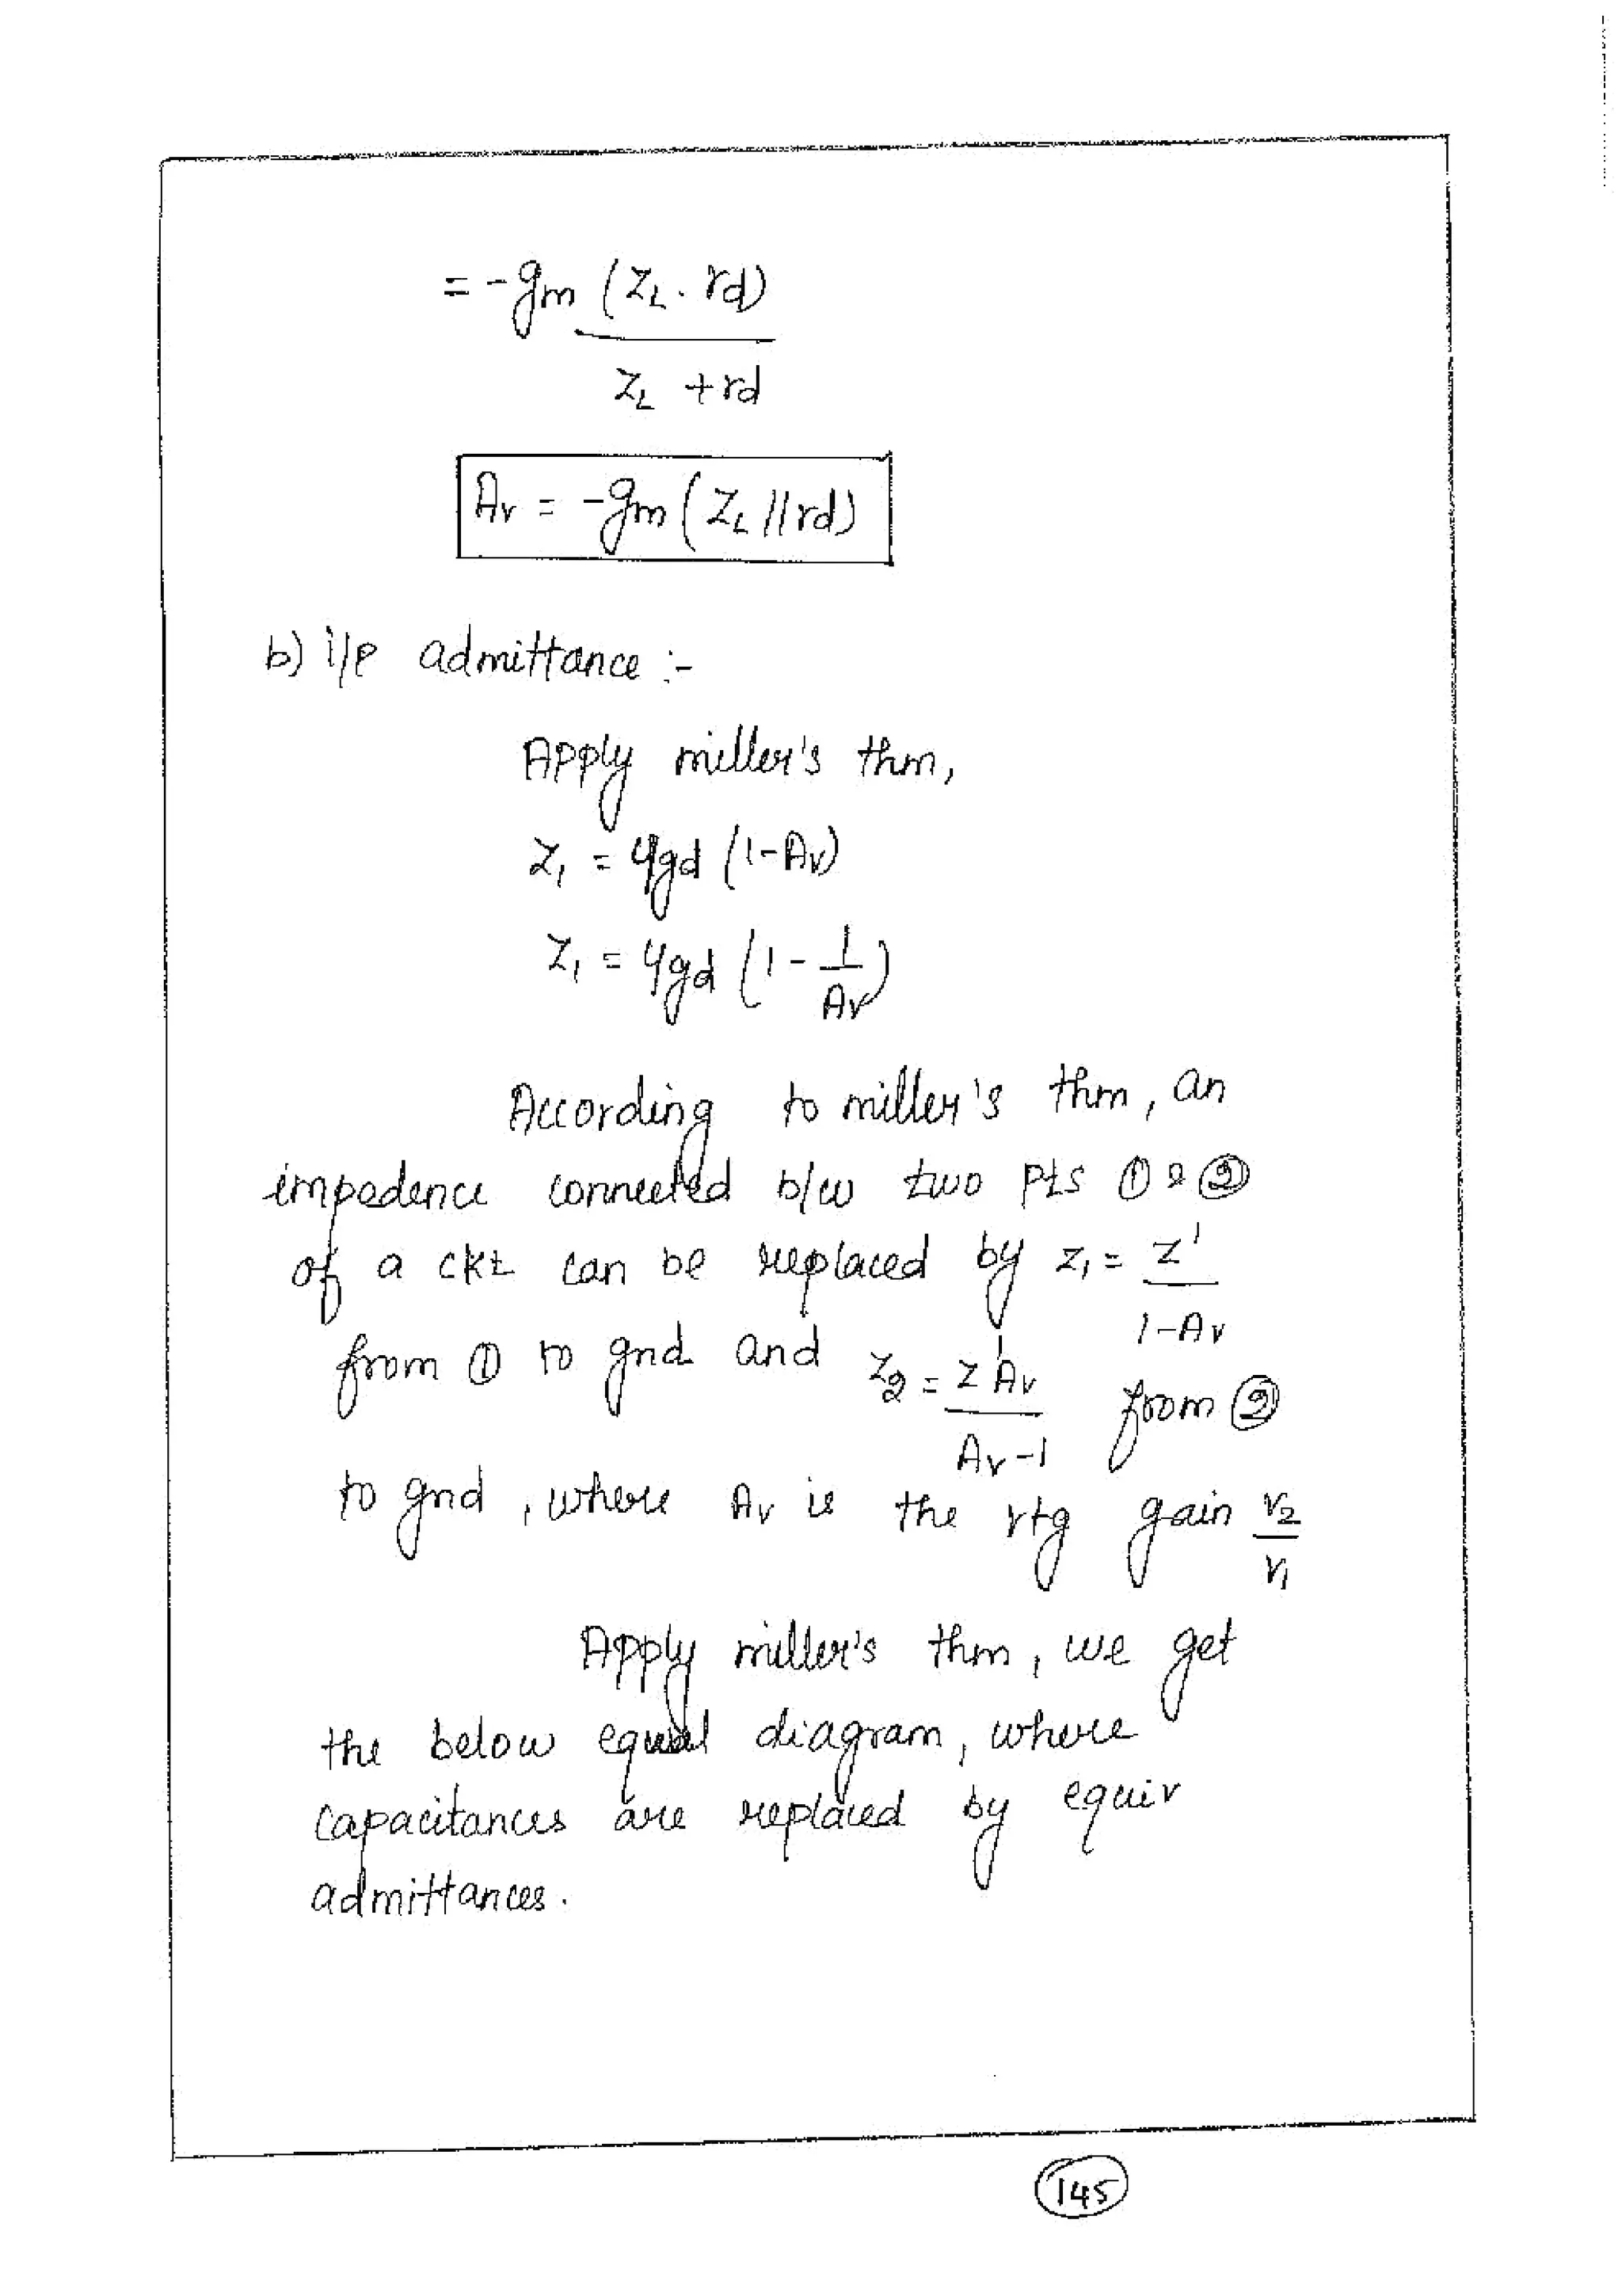 = -gm (ZL . rd)
ZL + rd
Av = -gm (ZL // rd)
b) i/p admittance :-
Apply miller's thm,
Z1 = Ygd (1-Av)
Z1 = Ygd (1 - 1/Av)
According to miller's thm, an
impedence connected b/w two pts ① & ②
of a ckt can be replaced by Z1 = Z'/1-Av
from ① to gnd and Z2 = Z'Av/Av-1 from ②
to gnd, where Av is the vtg gain V2/V1
Apply miller's thm, we get
the below equal diagram, where
capacitances are replaced by equiv
admittances.
145